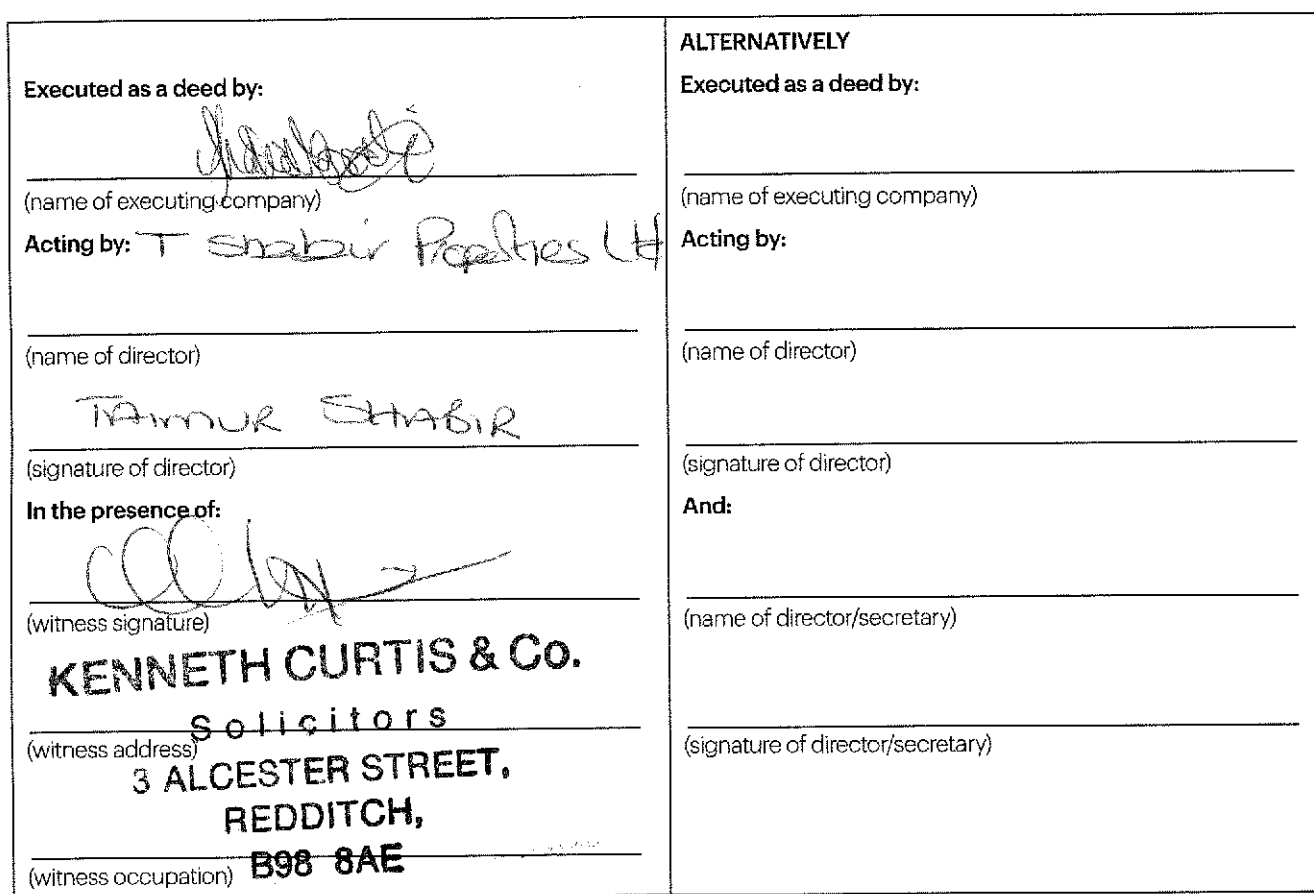 Executed as a deed by:
(name of executing company)
Acting by: T Shabir Properties Ltd
(name of director)
TAIMUR SHABIR
(signature of director)
In the presence of:
(witness signature)
KENNETH CURTIS & Co.
Solicitors
(witness address)
3 ALCESTER STREET,
REDDITCH,
B98 8AE
(witness occupation)
ALTERNATIVELY
Executed as a deed by:
(name of executing company)
Acting by:
(name of director)
(signature of director)
And:
(name of director/secretary)
(signature of director/secretary)